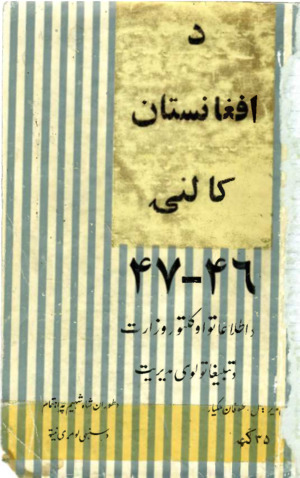 د
افغانستان
کالنۍ
۴۶-۴۷
د اطلاعاتو او کلتور وزارت
د تبلیغاتو لوی مدیریت
۳۵ ګڼه